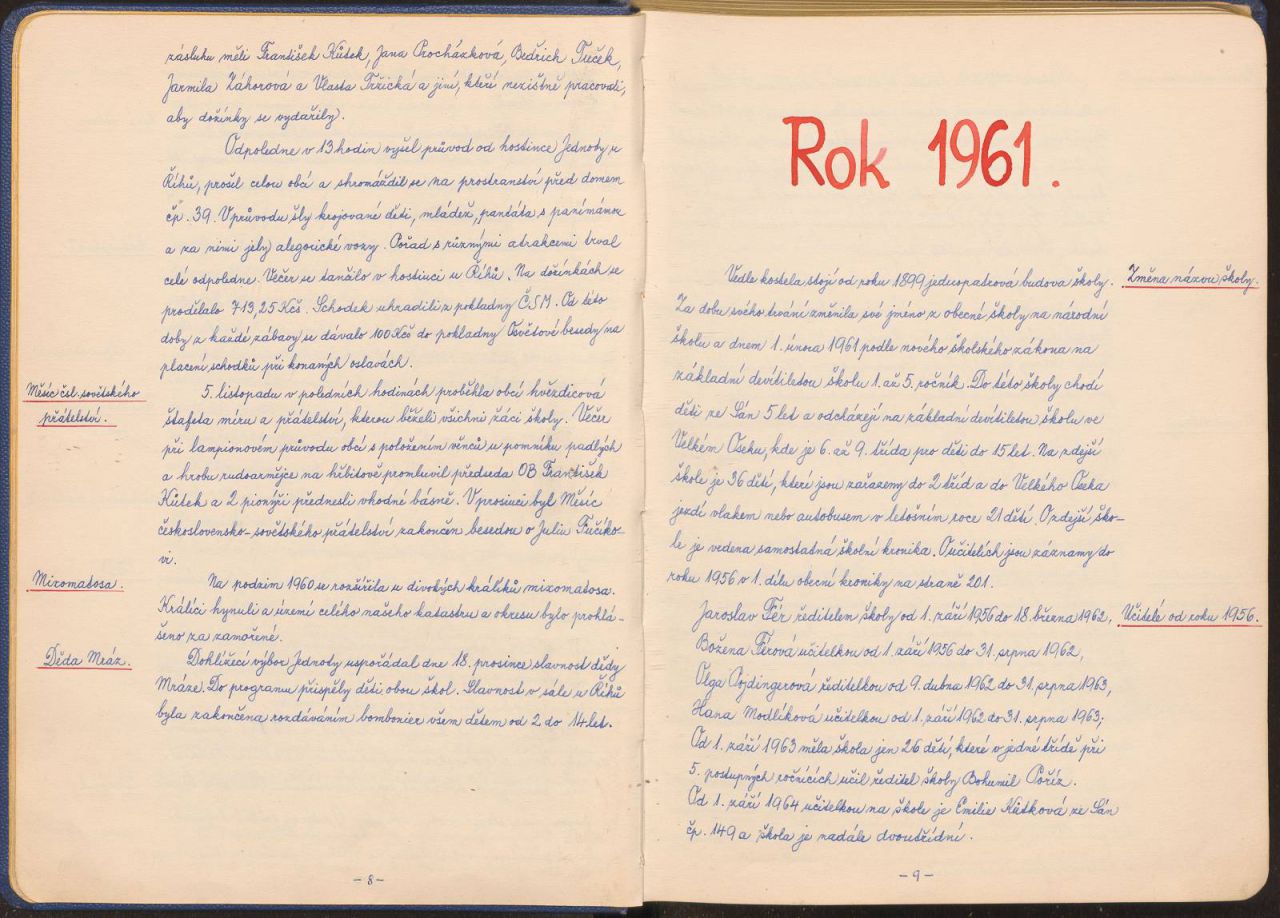 zásluhu měli František Kůtek, Jana Procházková, Bedřich Tuček,
Jarmila Záhorová a Vlasta Tržická a jiní, kteří nezištně pracovali,
aby dožínky se vydařily.
Odpoledne v 13 hodin vyšel průvod od hostince Jednoty u
Říhů, prošel celou obcí a shromáždil se na prostranství před domem
čp. 39. V průvodu šly krojované děti, mládež, pantáta s panímámou
a za nimi jely alegorické vozy. Pořad s různými atrakcemi trval
celé odpoledne. Večer se tančilo v hostinci u Říhů. Na dožínkách se
prodělalo 713,25 Kčs. Schodek uhradili z pokladny ČSM. Od této
doby z každé zábavy se dávalo 100 Kčs do pokladny Osvětové besedy na
placení schodků při konaných oslavách.
Měsíc čsl. sovětského
přátelství.
5. listopadu v poledních hodinách proběhla obcí hvězdicová
štafeta míru a přátelství, kterou běželi všichni žáci školy. Večer
při lampionovém průvodu obcí s položením věnců u pomníku padlých
a hrobu rudoarmějce na hřbitově promluvil předseda OB František
Kůtek a 2 pionýři přednesli vhodné básně. V prosinci byl Měsíc
československo-sovětského přátelství zakončen besedou o Juliu Fučíko-
vi.
Mixomatosa.
Na podzim 1960 se rozšířila u divokých králíků mixomatosa.
Králíci hynuli a území celého našeho katastru a okresu bylo prohlá-
šeno za zamořené.
Děda Mráz.
Dohlížecí výbor Jednoty uspořádal dne 18. prosince slavnost dědy
Mráze. Do programu přispěly děti obou škol. Slavnost v sále u Říhů
byla zakončena rozdáváním bombonier všem dětem od 2 do 14 let.
- 8 -
Rok 1961.
Změna názvu školy.
Vedle kostela stojí od roku 1899 jednopatrová budova školy.
Za dobu svého trvání změnila své jméno z obecné školy na národní
školu a dnem 1. února 1961 podle nového školského zákona na
základní devítiletou školu 1. až 5. ročník. Do této školy chodí
děti ze Sán 5 let a odcházejí na základní devítiletou školu ve
Velkém Oseku, kde je 6. až 9. třída pro děti do 15 let. Na zdejší
škole je 36 dětí, které jsou zařazeny do 2 tříd a do Velkého Oseka
jezdí vlakem nebo autobusem v letošním roce 21 dětí. O zdejší ško-
le je vedena samostatná školní kronika. O učitelích jsou záznamy do
roku 1956 v 1. dílu obecní kroniky na straně 201.
Učitelé od roku 1956.
Jaroslav Fér ředitelem školy od 1. září 1956 do 18. března 1962,
Božena Férová učitelkou od 1. září 1956 do 31. srpna 1962,
Olga Pojdingerová ředitelkou od 9. dubna 1962 do 31. srpna 1963,
Hana Modlíková učitelkou od 1. září 1962 do 31. srpna 1963;
Od 1. září 1963 měla škola jen 26 dětí, které v jedné třídě při
5. postupných ročnících učil ředitel školy Bohumil Poříz.
Od 1. září 1964 učitelkou na škole je Emilie Kůtková ze Sán
čp. 149 a škola je nadále dvoutřídní.
- 9 -